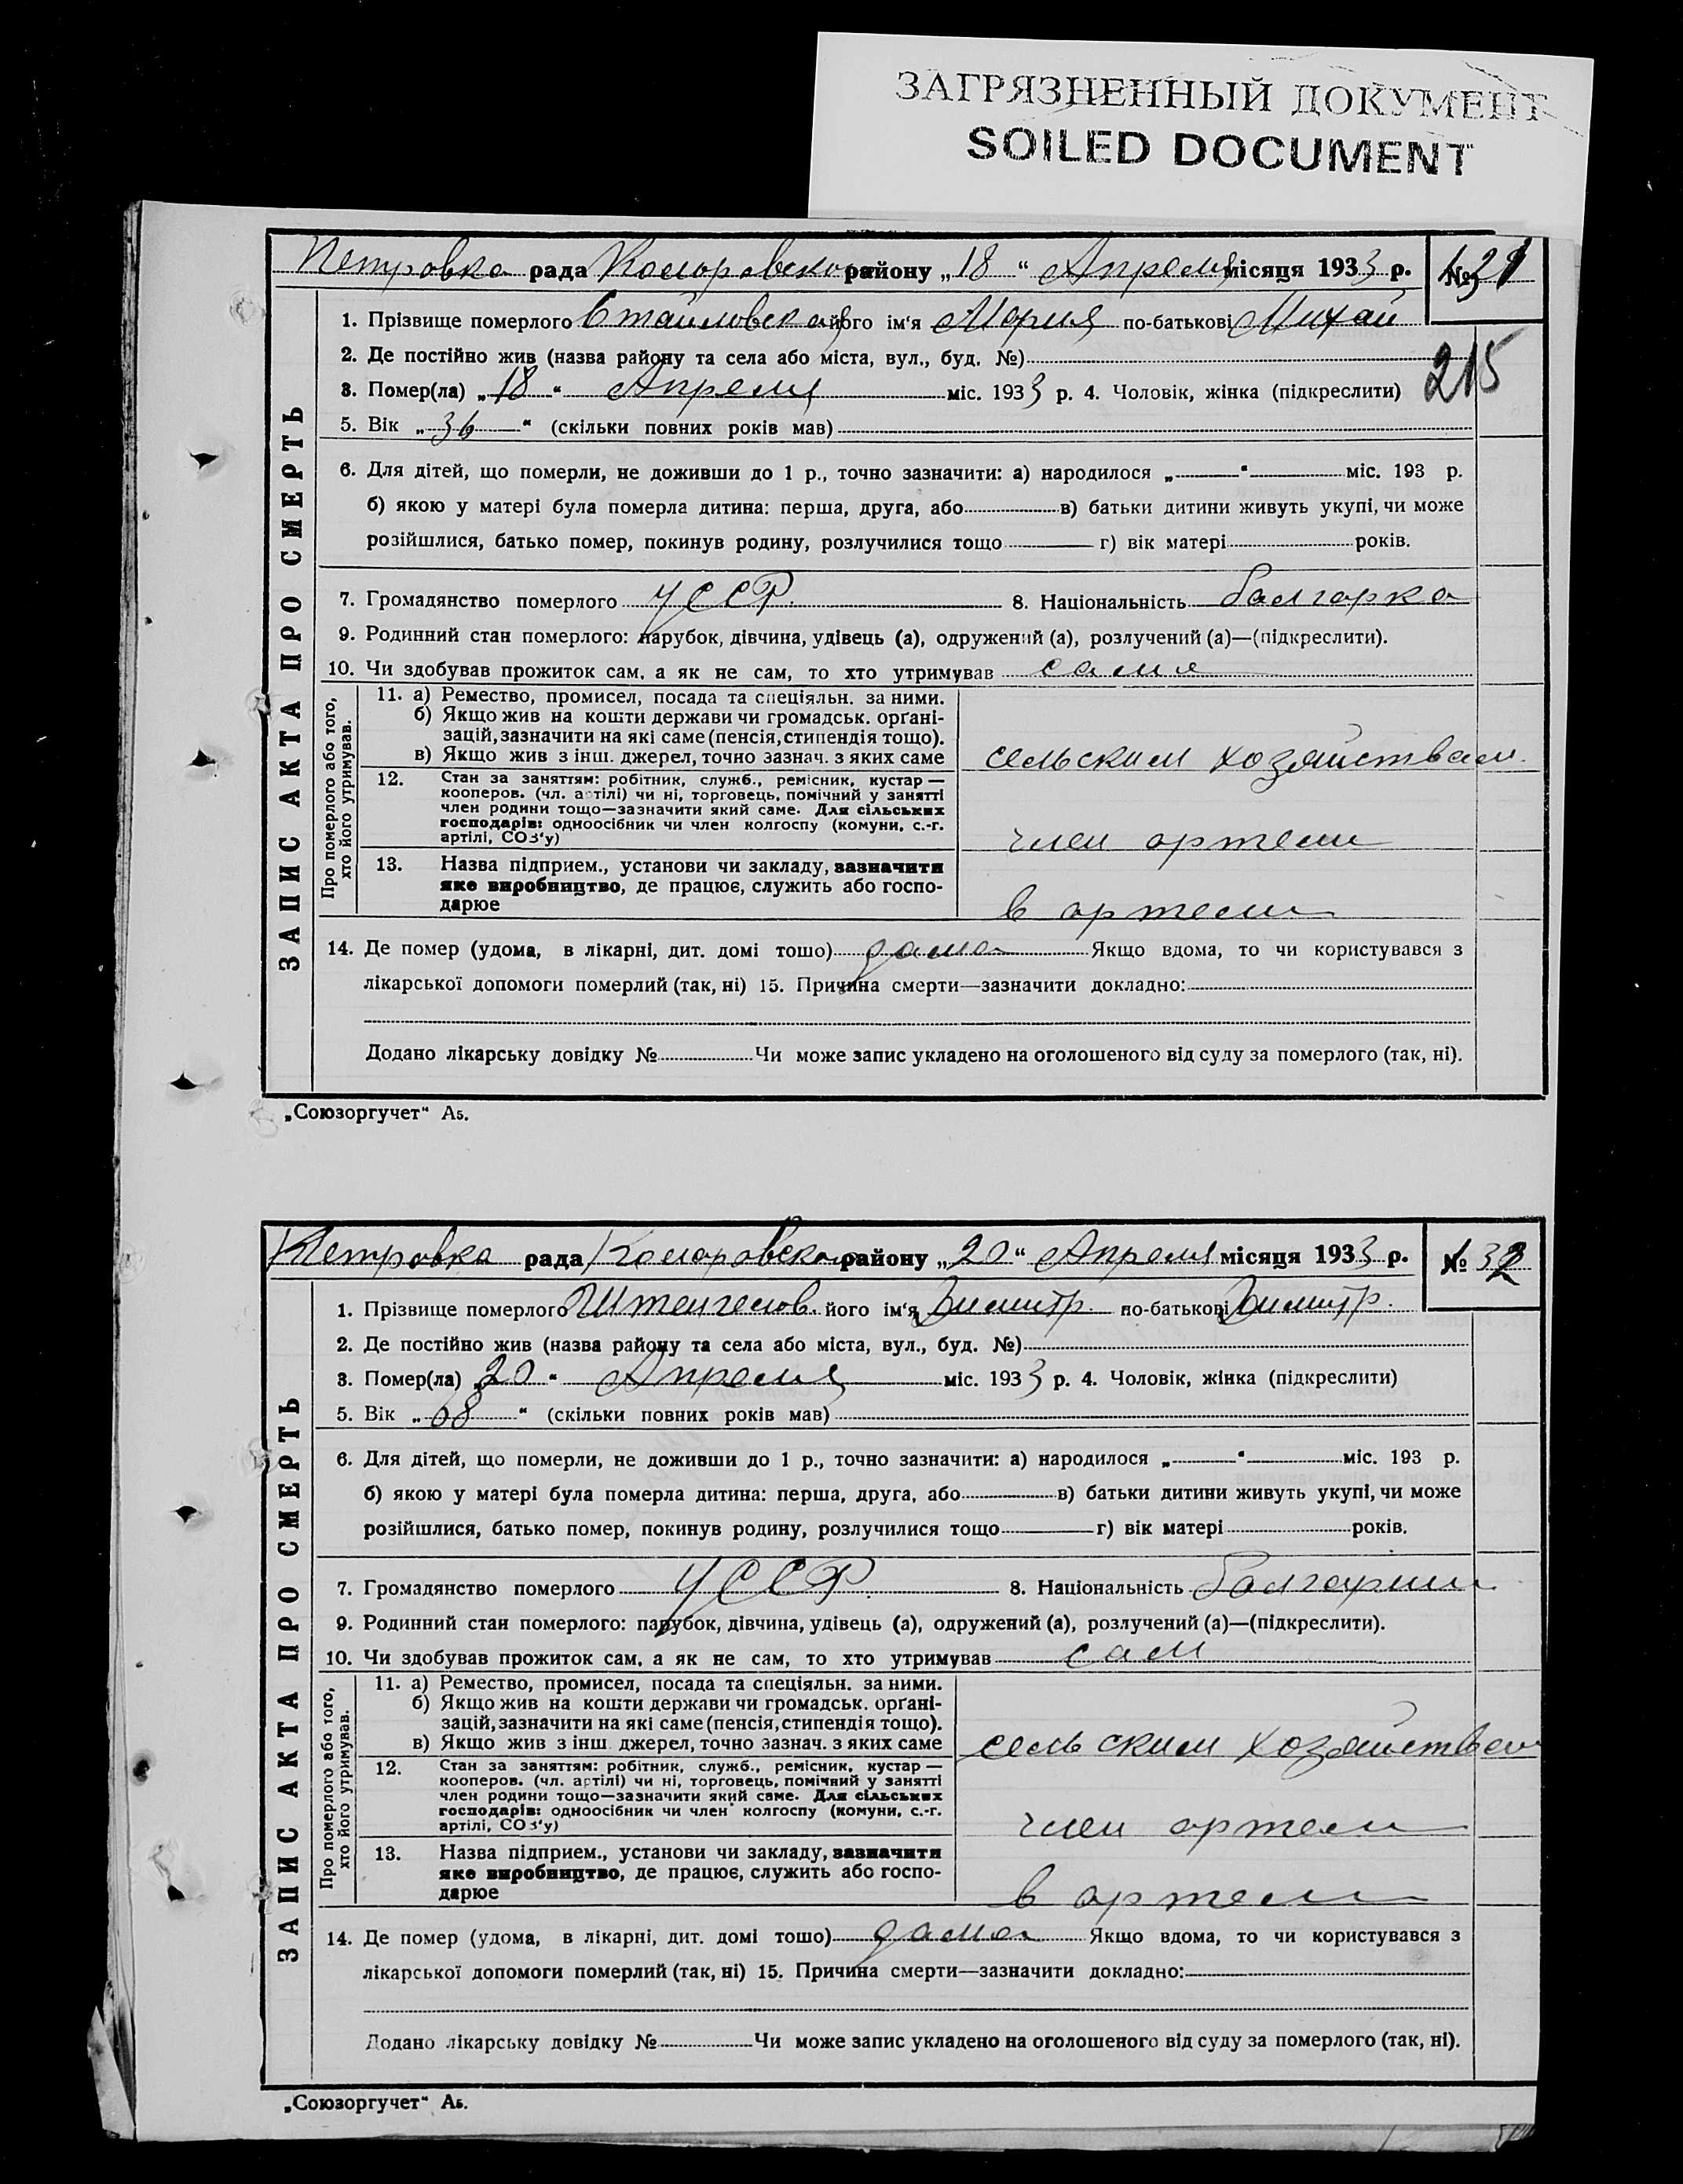 ЗАГРЯЗНЕННЫЙ ДОКУМЕНТ
SOILED DOCUMENT
Петровка рада Коларовского району „18“ Апреля місяця 1933 р. № 31
215
ЗАПИС АКТА ПРО СМЕРТЬ
1. Прізвище померлого його ім'я Мария по-батькові Михай
2. Де постійно жив (назва району та села або міста, вул., буд. №)
3. Помер(ла) „18“ Апреля міс. 1933 р. 4. Чоловік, жінка (підкреслити)
5. Вік „36“ (скільки повних років мав)
6. Для дітей, що померли, не доживши до 1 р., точно зазначити: а) народилося „ “ міс. 193 р.
б) якою у матері була померла дитина: перша, друга, або в) батьки дитини живуть укупі, чи може
розійшлися, батько помер, покинув родину, розлучилися тощо г) вік матері років.
7. Громадянство померлого УССР. 8. Національність болгарка
9. Родинний стан померлого: парубок, дівчина, удівець (а), одружений (а), розлучений (а)—(підкреслити).
10. Чи здобував прожиток сам, а як не сам, то хто утримував сама
Про померлого або того,
хто його утримував.
11. а) Ремество, промисел, посада та спеціяльн. за ними.
б) Якщо жив на кошти держави чи громадськ. орґані-
зацій, зазначити на які саме (пенсія, стипендія тощо).
в) Якщо жив з інш. джерел, точно зазнач. з яких саме
сельским хозяйствам
12. Стан за заняттям: робітник, служб., ремісник, кустар —
кооперов. (чл. артілі) чи ні, торговець, помічний у занятті
член родини тощо—зазначити який саме. Для сільських
господарів: одноосібник чи член колгоспу (комуни, с.-г.
артілі, СОЗ'у)
член артели
13. Назва підприєм., установи чи закладу, зазначити
яке виробництво, де працює, служить або госпо-
дарює
в артели
14. Де помер (удома, в лікарні, дит. домі тошо) дома Якщо вдома, то чи користувався з
лікарської допомоги померлий (так, ні) 15. Причина смерти—зазначити докладно:
Додано лікарську довідку № Чи може запис укладено на оголошеного від суду за померлого (так, ні).
„Союзоргучет“ А5.
Петровка рада Коларовского району „20“ Апреля місяця 1933 р. № 32
ЗАПИС АКТА ПРО СМЕРТЬ
1. Прізвище померлого його ім'я Димитр по-батькові Димитр.
2. Де постійно жив (назва району та села або міста, вул., буд. №)
3. Помер(ла) „20“ Апреля міс. 1933 р. 4. Чоловік, жінка (підкреслити)
5. Вік „68“ (скільки повних років мав)
6. Для дітей, що померли, не доживши до 1 р., точно зазначити: а) народилося „ “ міс. 193 р.
б) якою у матері була померла дитина: перша, друга, або в) батьки дитини живуть укупі, чи може
розійшлися, батько помер, покинув родину, розлучилися тощо г) вік матері років.
7. Громадянство померлого УССР. 8. Національність болгарин
9. Родинний стан померлого: парубок, дівчина, удівець (а), одружений (а), розлучений (а)—(підкреслити).
10. Чи здобував прожиток сам, а як не сам, то хто утримував сам
Про померлого або того,
хто його утримував.
11. а) Ремество, промисел, посада та спеціяльн. за ними.
б) Якщо жив на кошти держави чи громадськ. орґані-
зацій, зазначити на які саме (пенсія, стипендія тощо).
в) Якщо жив з інш. джерел, точно зазнач. з яких саме
сельским хозяйствам
12. Стан за заняттям: робітник, служб., ремісник, кустар —
кооперов. (чл. артілі) чи ні, торговець, помічний у занятті
член родини тощо—зазначити який саме. Для сільських
господарів: одноосібник чи член колгоспу (комуни, с.-г.
артілі, СОЗ'у)
член артели
13. Назва підприєм., установи чи закладу, зазначити
яке виробництво, де працює, служить або госпо-
дарює
в артели
14. Де помер (удома, в лікарні, дит. домі тошо) дома Якщо вдома, то чи користувався з
лікарської допомоги померлий (так, ні) 15. Причина смерти—зазначити докладно:
Додано лікарську довідку № Чи може запис укладено на оголошеного від суду за померлого (так, ні).
„Союзоргучет“ А5.